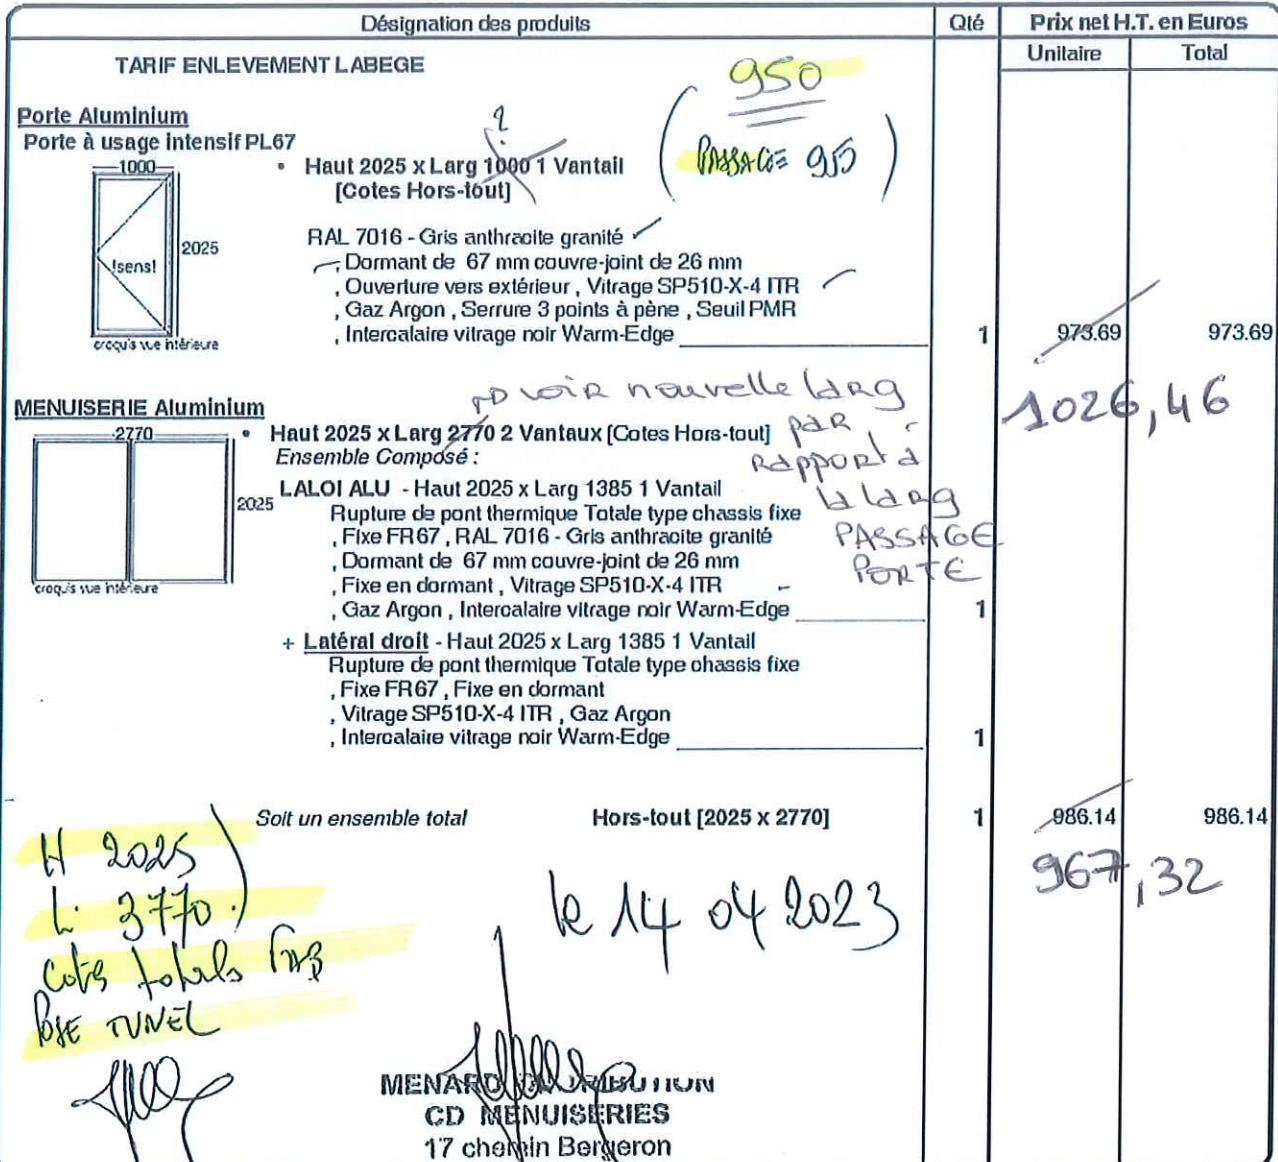 Désignation des produits
Qté
Prix net H.T. en Euros
Unitaire
Total
TARIF ENLEVEMENT LABEGE
950
(PASSAGE= 950)
Porte Aluminium
Porte à usage intensif PL67
?
• Haut 2025 x Larg 1000 1 Vantail
[Cotes Hors-tout]
1000
2025
!sens!
croquis vue intérieure
RAL 7016 - Gris anthracite granité
, Dormant de 67 mm couvre-joint de 26 mm
, Ouverture vers extérieur , Vitrage SP510-X-4 ITR
, Gaz Argon , Serrure 3 points à pène , Seuil PMR
, Intercalaire vitrage noir Warm-Edge 1 973.69 973.69
1026,46
voir nouvelle larg
par
rapport à
la larg
PASSAGE
PORTE
MENUISERIE Aluminium
2770
2025
croquis vue intérieure
• Haut 2025 x Larg 2770 2 Vantaux [Cotes Hors-tout]
Ensemble Composé :
LALOI ALU - Haut 2025 x Larg 1385 1 Vantail
Rupture de pont thermique Totale type chassis fixe
, Fixe FR67 , RAL 7016 - Gris anthracite granité
, Dormant de 67 mm couvre-joint de 26 mm
, Fixe en dormant , Vitrage SP510-X-4 ITR
, Gaz Argon , Intercalaire vitrage noir Warm-Edge 1
+ Latéral droit - Haut 2025 x Larg 1385 1 Vantail
Rupture de pont thermique Totale type chassis fixe
, Fixe FR67 , Fixe en dormant
, Vitrage SP510-X-4 ITR , Gaz Argon
, Intercalaire vitrage noir Warm-Edge 1
Soit un ensemble total Hors-tout [2025 x 2770] 1 986.14 986.14
967,32
H 2025
L. 3770
Cotes totals FAB
POSE TUNEL
le 14 04 2023
MENARD DISTRIBUTION
CD MENUISERIES
17 chemin Bergeron